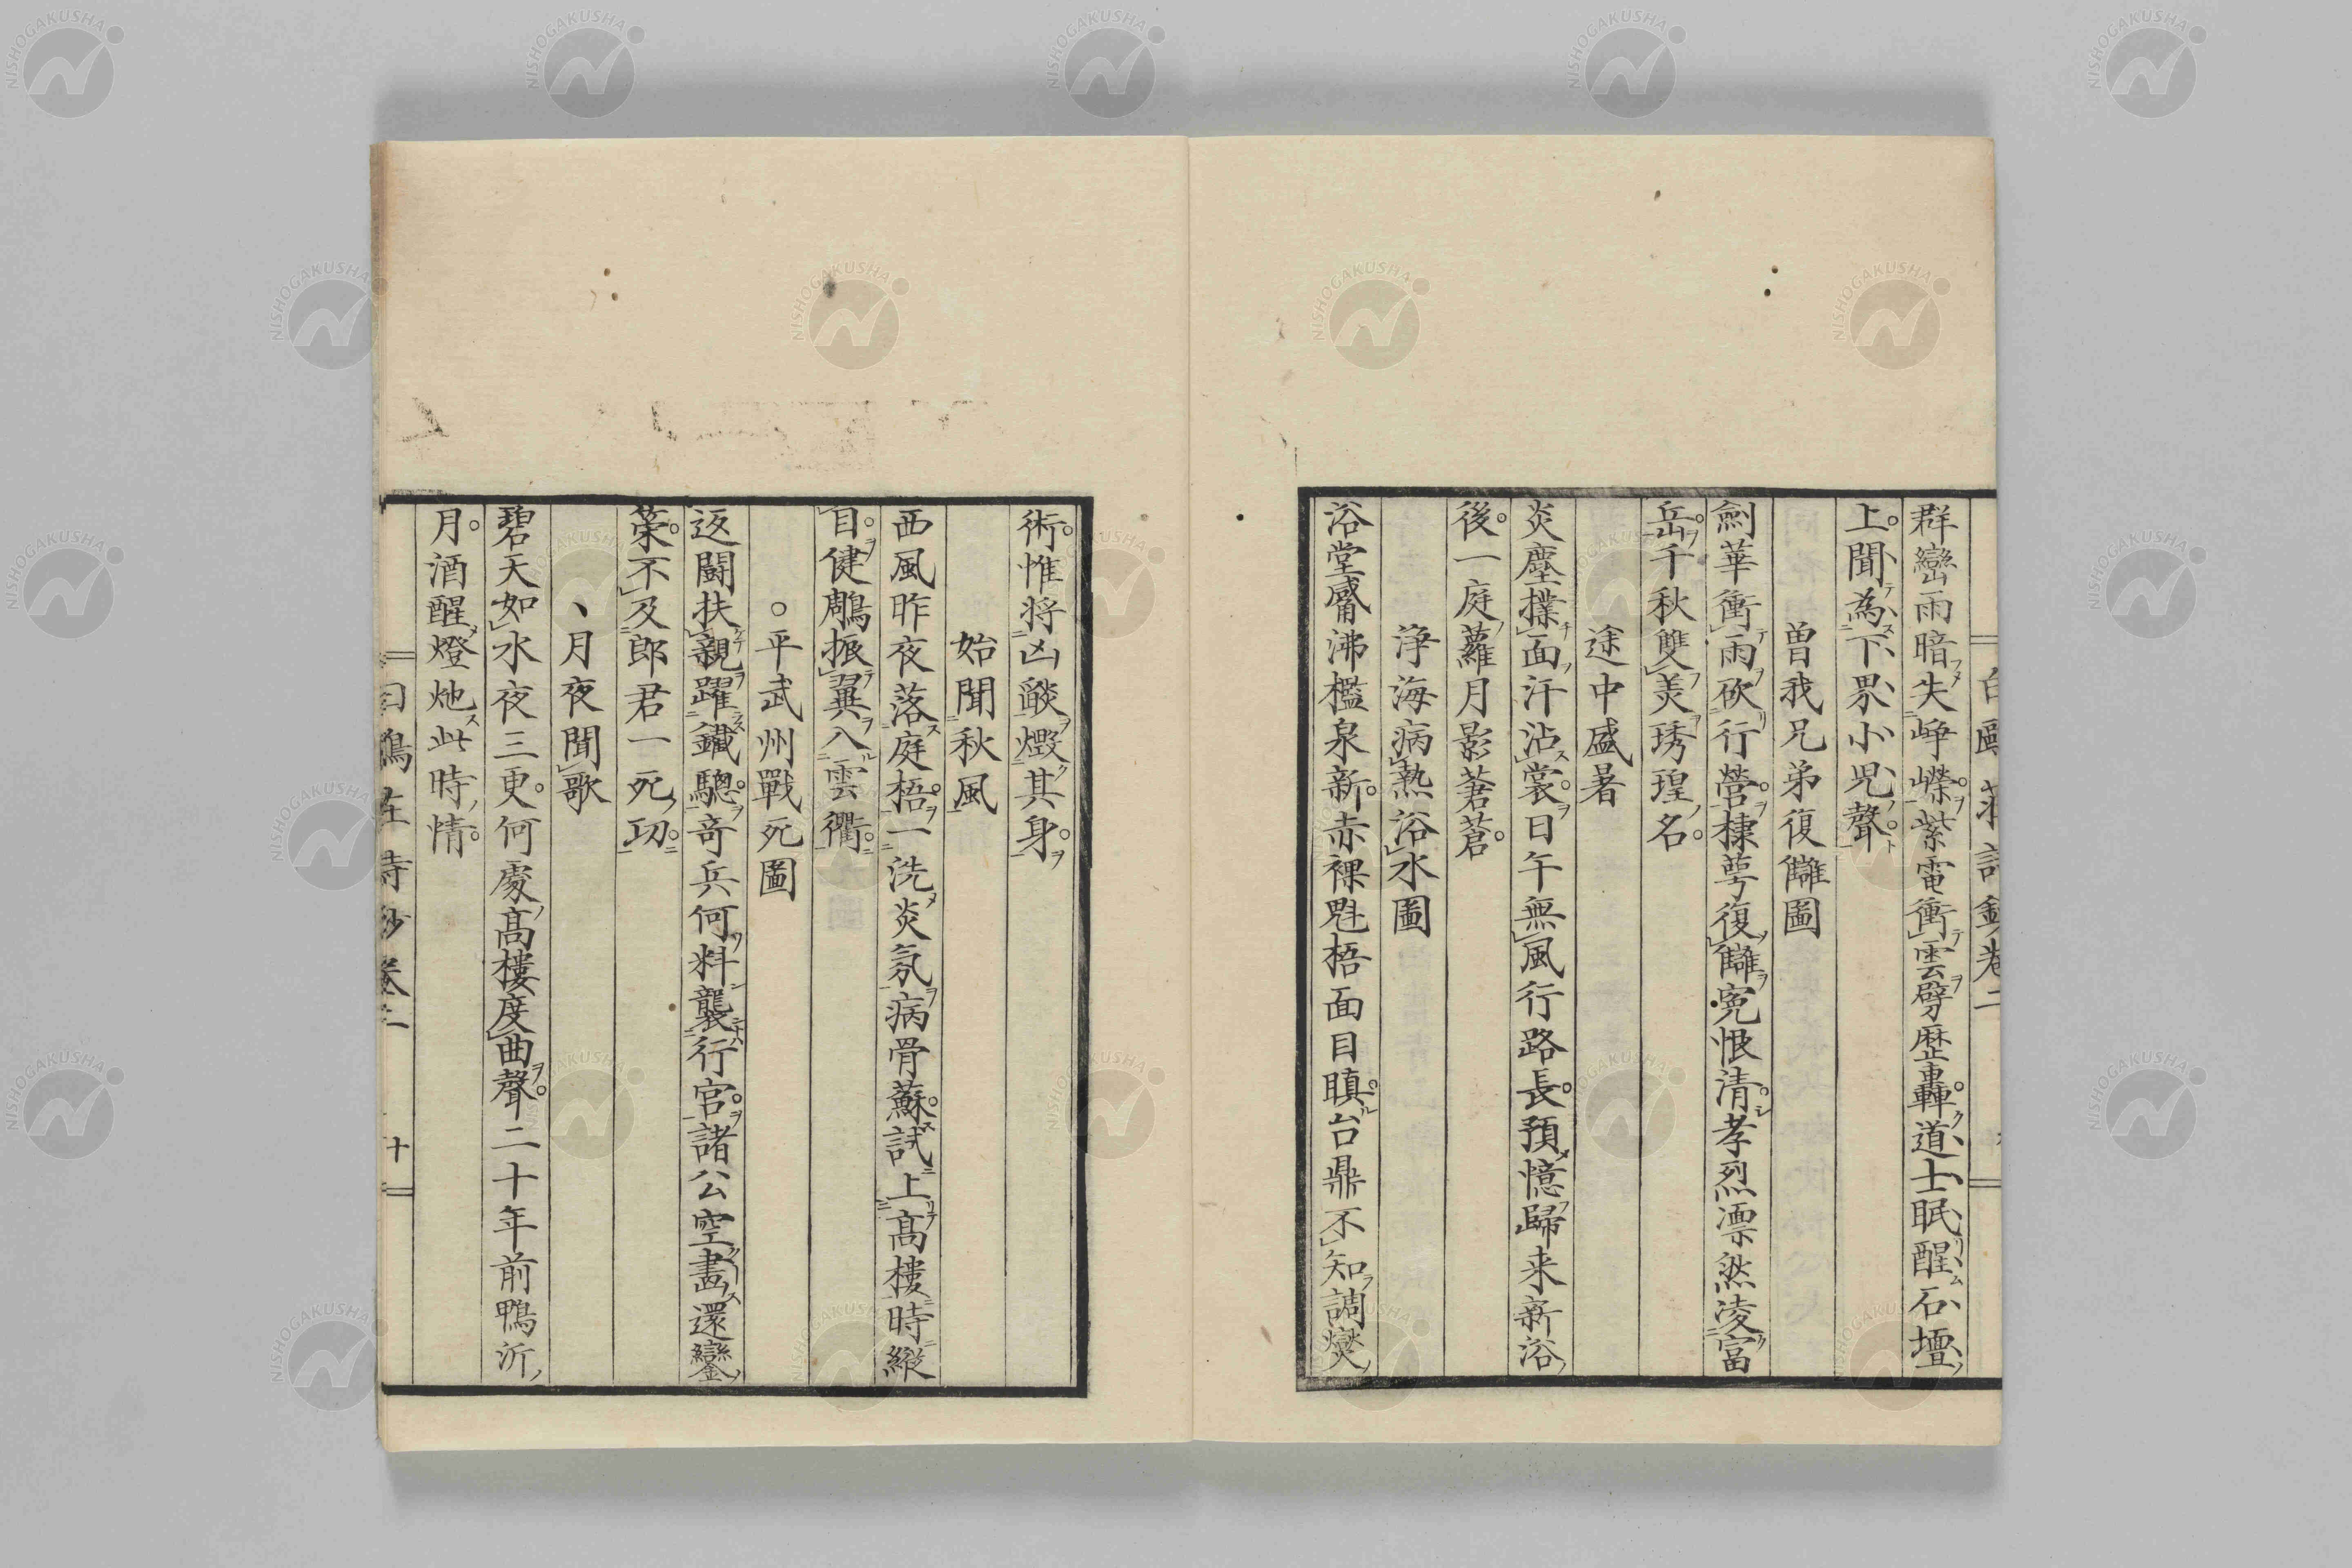 群巒雨暗失崢嶸紫電衝雲劈歴轟道士眠醒石壇
上聞為下界小児聲
曽我兄弟復讎圖
劍華衝雨砍行營棣萼復讎寃恨清孝烈凛然凌富
岳千秋雙美琇瑝名
途中盛暑
炎塵撲面汗沾裳日午無風行路長預憶歸来新浴
後一庭蘿月影蒼蒼
浄海病熱浴水圖
浴堂觱沸檻泉新赤裸魁梧面目瞋台鼎不知調燮
術惟将凶燄燬其身
始聞秋風
西風昨夜落庭梧一洗炎氛病骨蘇試上髙樓時縦
目健鵰振翼入雲衢
○平武州戰死圖
返鬪扶親躍鐵驄奇兵何料襲行宮諸公空畫還鑾
策不及郎君一死功
、月夜聞歌
碧天如水夜三更何處髙樓度曲聲二十年前鴨沂
月酒醒燈灺此時情
十
NISHOGAKUSHA